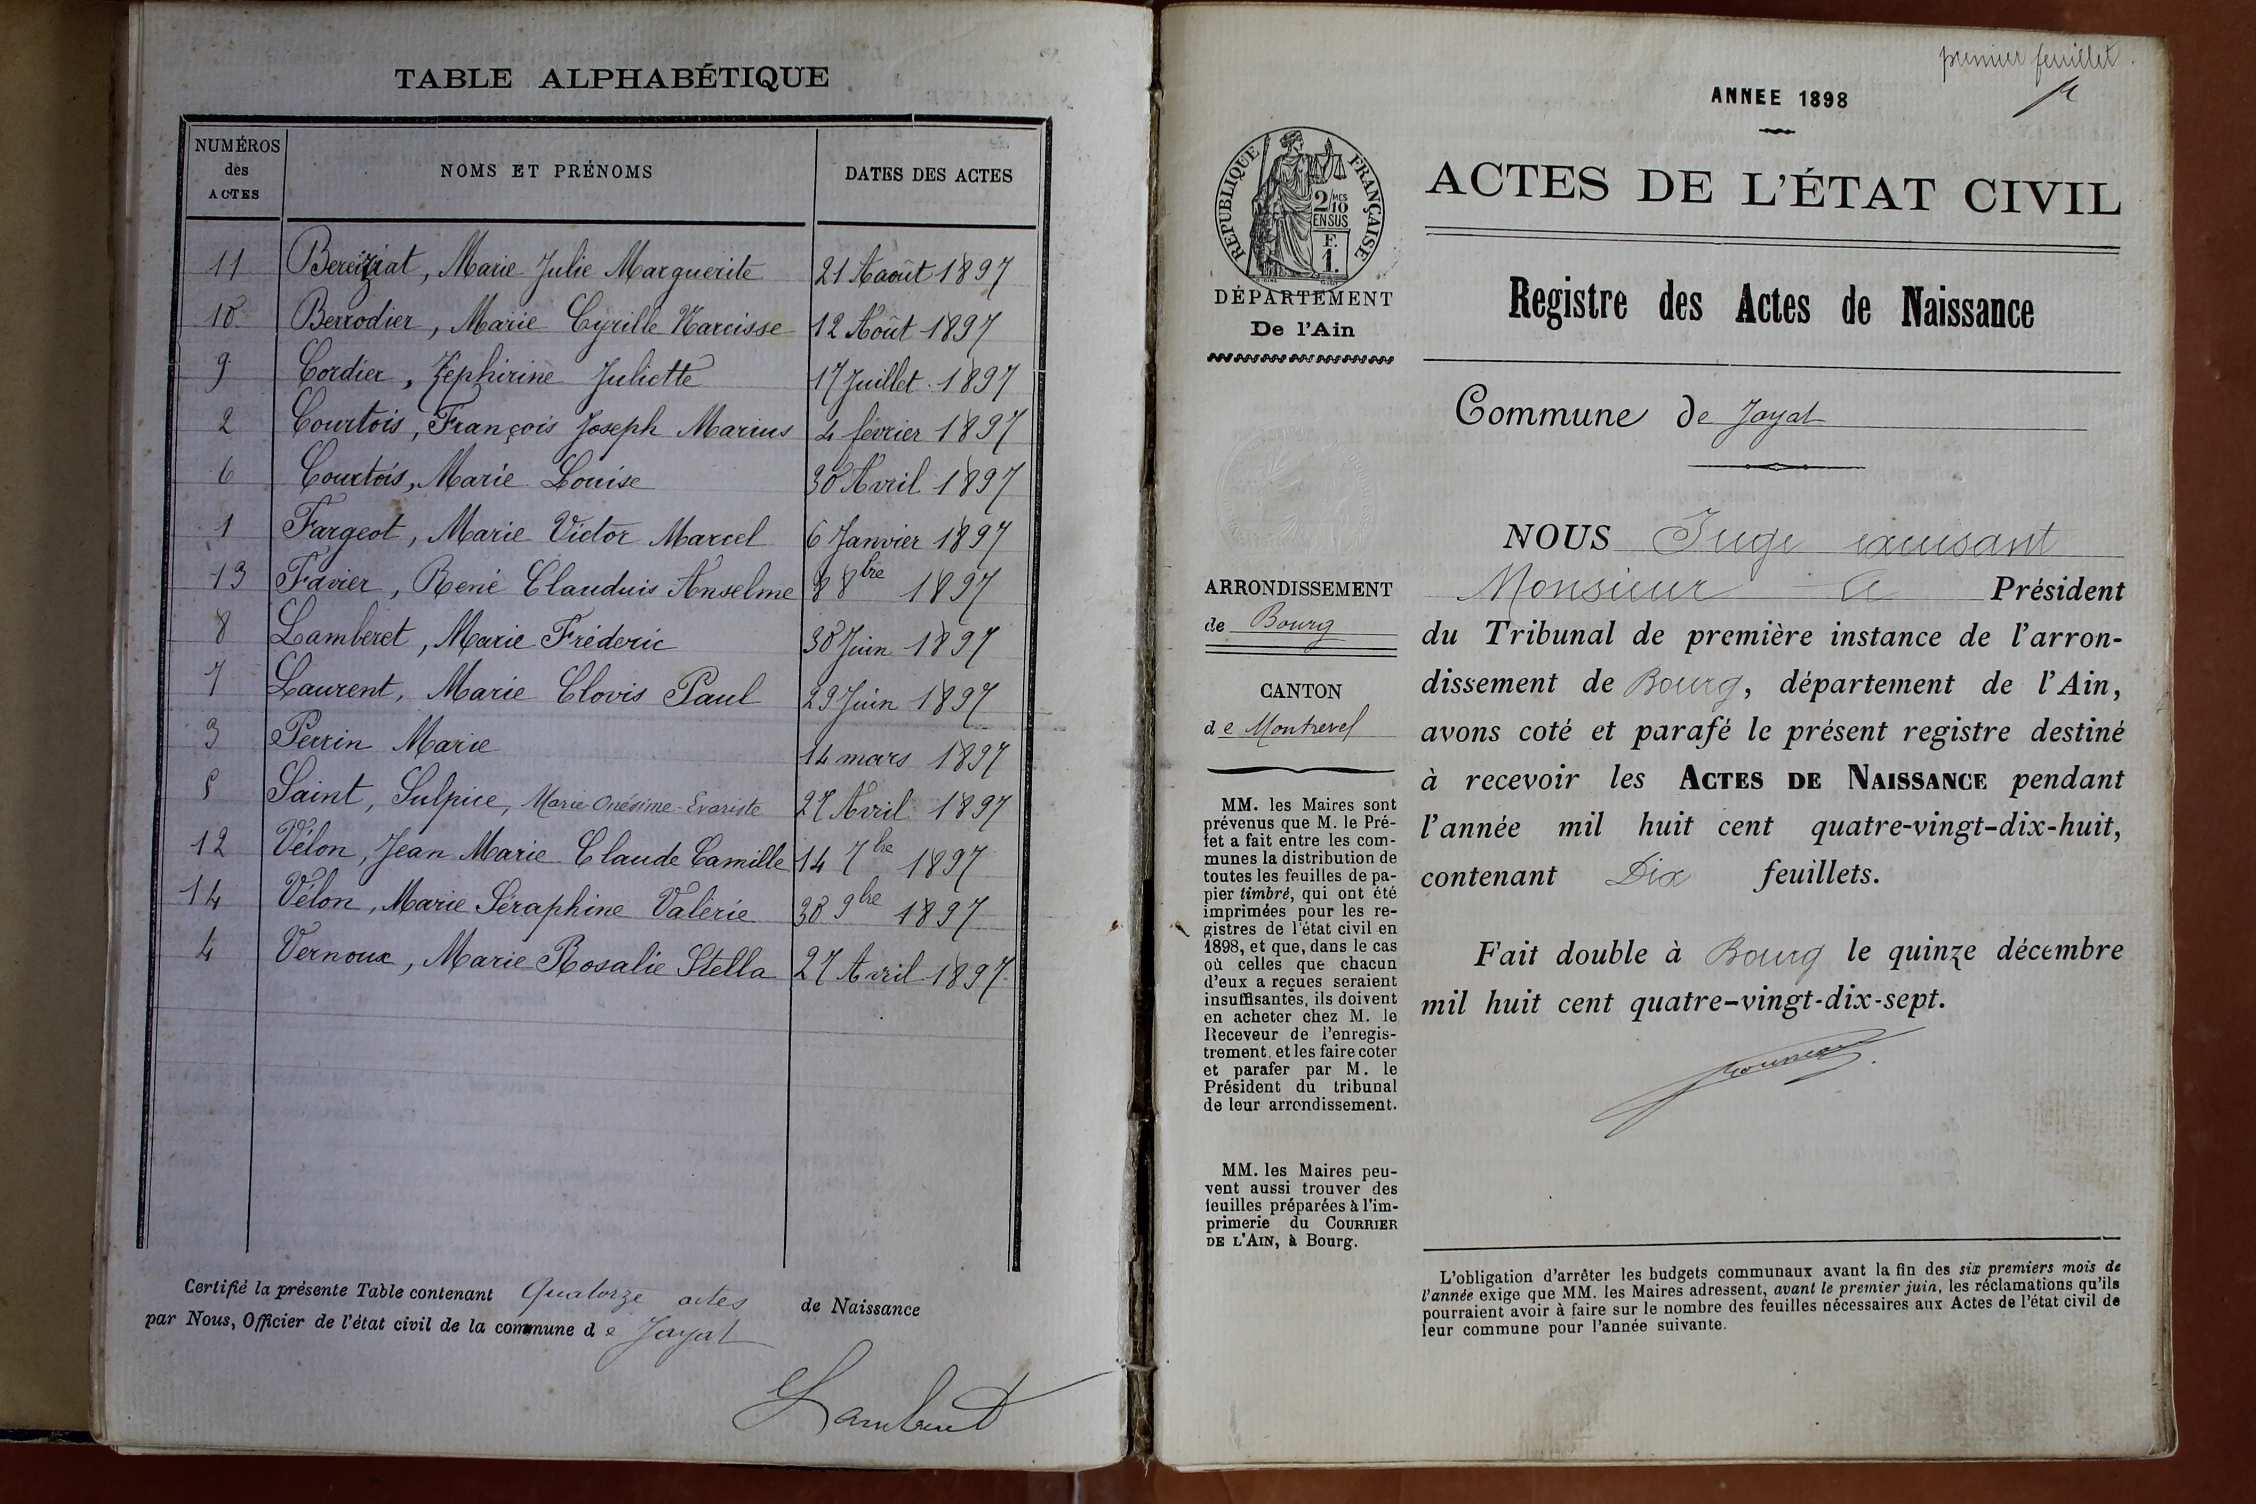 TABLE ALPHABÉTIQUE
NUMÉROS des ACTES NOMS ET PRÉNOMS DATES DES ACTES
11 Bereiziat, Marie Julie Marguerite 21 Aaoüt 1897
10 Berrodier, Marie Cyrille Narcisse 12 Août 1897
9 Cordier, Zéphirine Juliette 17 Juillet 1897
2 Courtois, François Joseph Marius 4 février 1897
6 Courtois, Marie Louise 30 Avril 1897
1 Fargeot, Marie Victor Marcel 6 Janvier 1897
13 Favier, René Clauduis Anselme 8 8bre 1897
8 Lamberet, Marie Fréderic 30 Juin 1897
7 Laurent, Marie Clovis Paul 29 Juin 1897
3 Perrin Marie 14 mars 1897
5 Saint, Sulpice, Marie-Onésime-Evariste 27 Avril 1897
12 Vélon, Jean Marie Claude Camille 14 7bre 1897
14 Vélon, Marie Séraphine Valérie 30 9bre 1897
4 Vernoux, Marie Rosalie Stella 27 Avril 1897.
Certifié la présente Table contenant Quatorze actes de Naissance
par Nous, Officier de l'état civil de la commune de Jayat
premier feuillet.
ANNEE 1898
RÉPUBLIQUE FRANÇAISE
2/10 MES
EN SUS
F.
1.
DÉPARTEMENT
De l'Ain
ACTES DE L'ÉTAT CIVIL
Registre des Actes de Naissance
Commune de Jayat
ARRONDISSEMENT
de Bourg
CANTON
de Montrevel
MM. les Maires sont
prévenus que M. le Pré-
fet a fait entre les com-
munes la distribution de
toutes les feuilles de pa-
pier timbré, qui ont été
imprimées pour les re-
gistres de l'état civil en
1898, et que, dans le cas
où celles que chacun
d'eux a reçues seraient
insuffisantes, ils doivent
en acheter chez M. le
Receveur de l'enregis-
trement, et les faire coter
et parafer par M. le
Président du tribunal
de leur arrondissement.
MM. les Maires peu-
vent aussi trouver des
feuilles préparées à l'im-
primerie du COURRIER
DE L'AIN, à Bourg.
NOUS Juge
Monsieur le Président
du Tribunal de première instance de l'arron-
dissement de Bourg, département de l'Ain,
avons coté et parafé le présent registre destiné
à recevoir les ACTES DE NAISSANCE pendant
l'année mil huit cent quatre-vingt-dix-huit,
contenant Dix feuillets.
Fait double à Bourg le quinze décembre
mil huit cent quatre-vingt-dix-sept.
L'obligation d'arrêter les budgets communaux avant la fin des six premiers mois de
l'année exige que MM. les Maires adressent, avant le premier juin, les réclamations qu'ils
pourraient avoir à faire sur le nombre des feuilles nécessaires aux Actes de l'état civil de
leur commune pour l'année suivante.